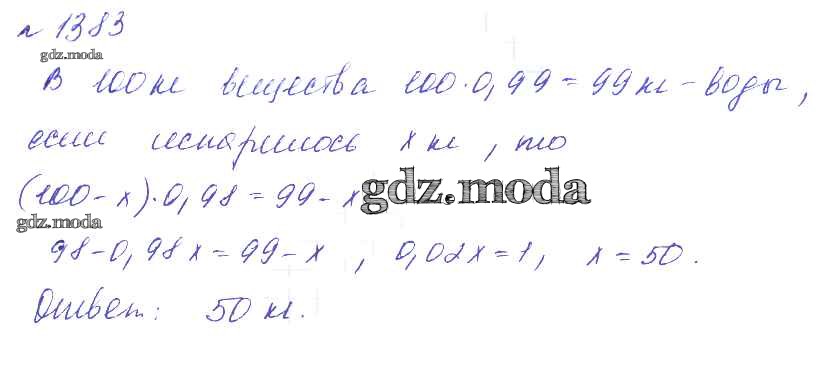 № 1383
gdz.moda
В 100 кг вещества 100·0,99 = 99 кг – воды,
если испарилось x кг, то
(100 – x)·0,98 = 99 – x
gdz.moda
gdz.moda
98 – 0,98x = 99 – x, 0,02x = 1, x = 50.
Ответ: 50 кг.